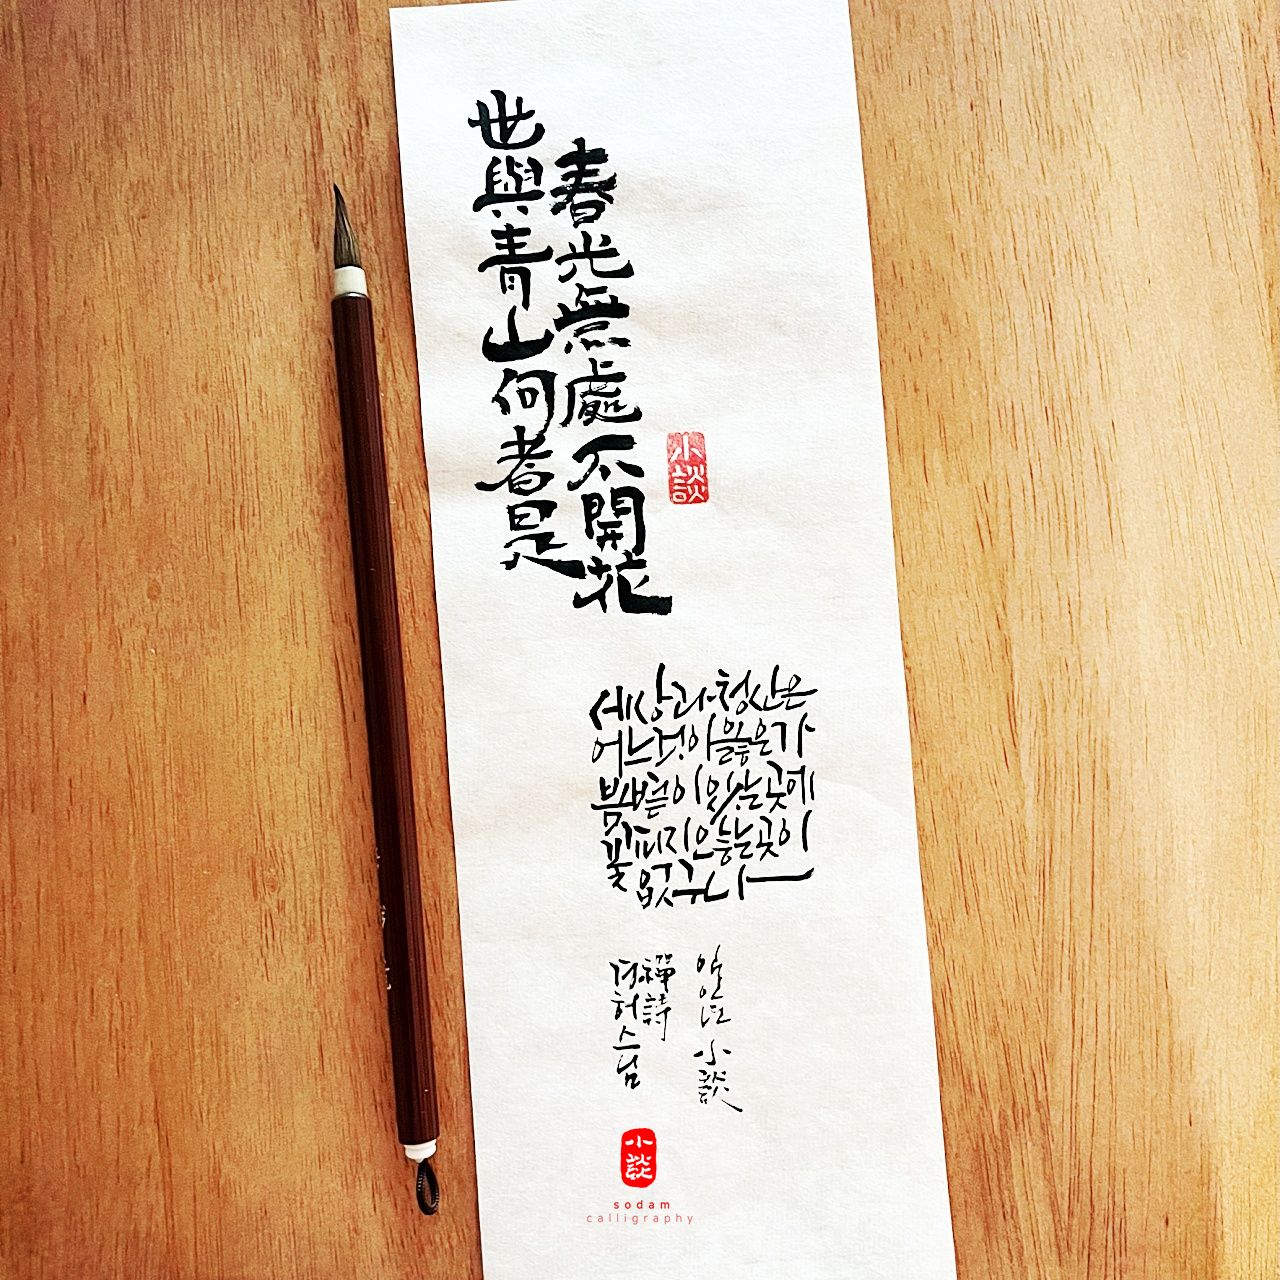 世與青山何者是
春光無處不開花
小談
세상과 청산은
어느것이 옳은가
봄볕이 있는곳에
꽃피지 않는곳이
없구나
禪詩
경허스님
小談
小談
sodam
calligraphy